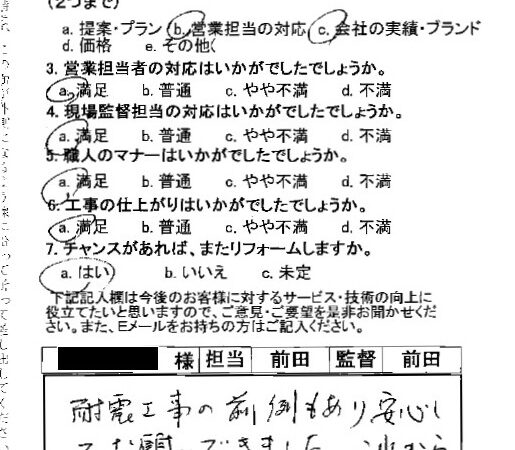 (2つまで)
a. 提案・プラン b. 営業担当の対応 c. 会社の実績・ブランド
d. 価格 e. その他(
3. 営業担当者の対応はいかがでしたでしょうか。
a. 満足 b. 普通 c. やや不満 d. 不満
4. 現場監督担当の対応はいかがでしたでしょうか。
a. 満足 b. 普通 c. やや不満 d. 不満
5. 職人のマナーはいかがでしたでしょうか。
a. 満足 b. 普通 c. やや不満 d. 不満
6. 工事の仕上がりはいかがでしたでしょうか。
a. 満足 b. 普通 c. やや不満 d. 不満
7. チャンスがあれば、またリフォームしますか。
a. はい b. いいえ c. 未定
下記記入欄は今後のお客様に対するサービス・技術の向上に
役立てたいと思いますので、ご意見・ご要望を是非お聞かせくだ
さい。また、Eメールをお持ちの方はご記入ください。
様 担当 前田 監督 前田
耐震工事の前例もあり安心し
てお願いできました